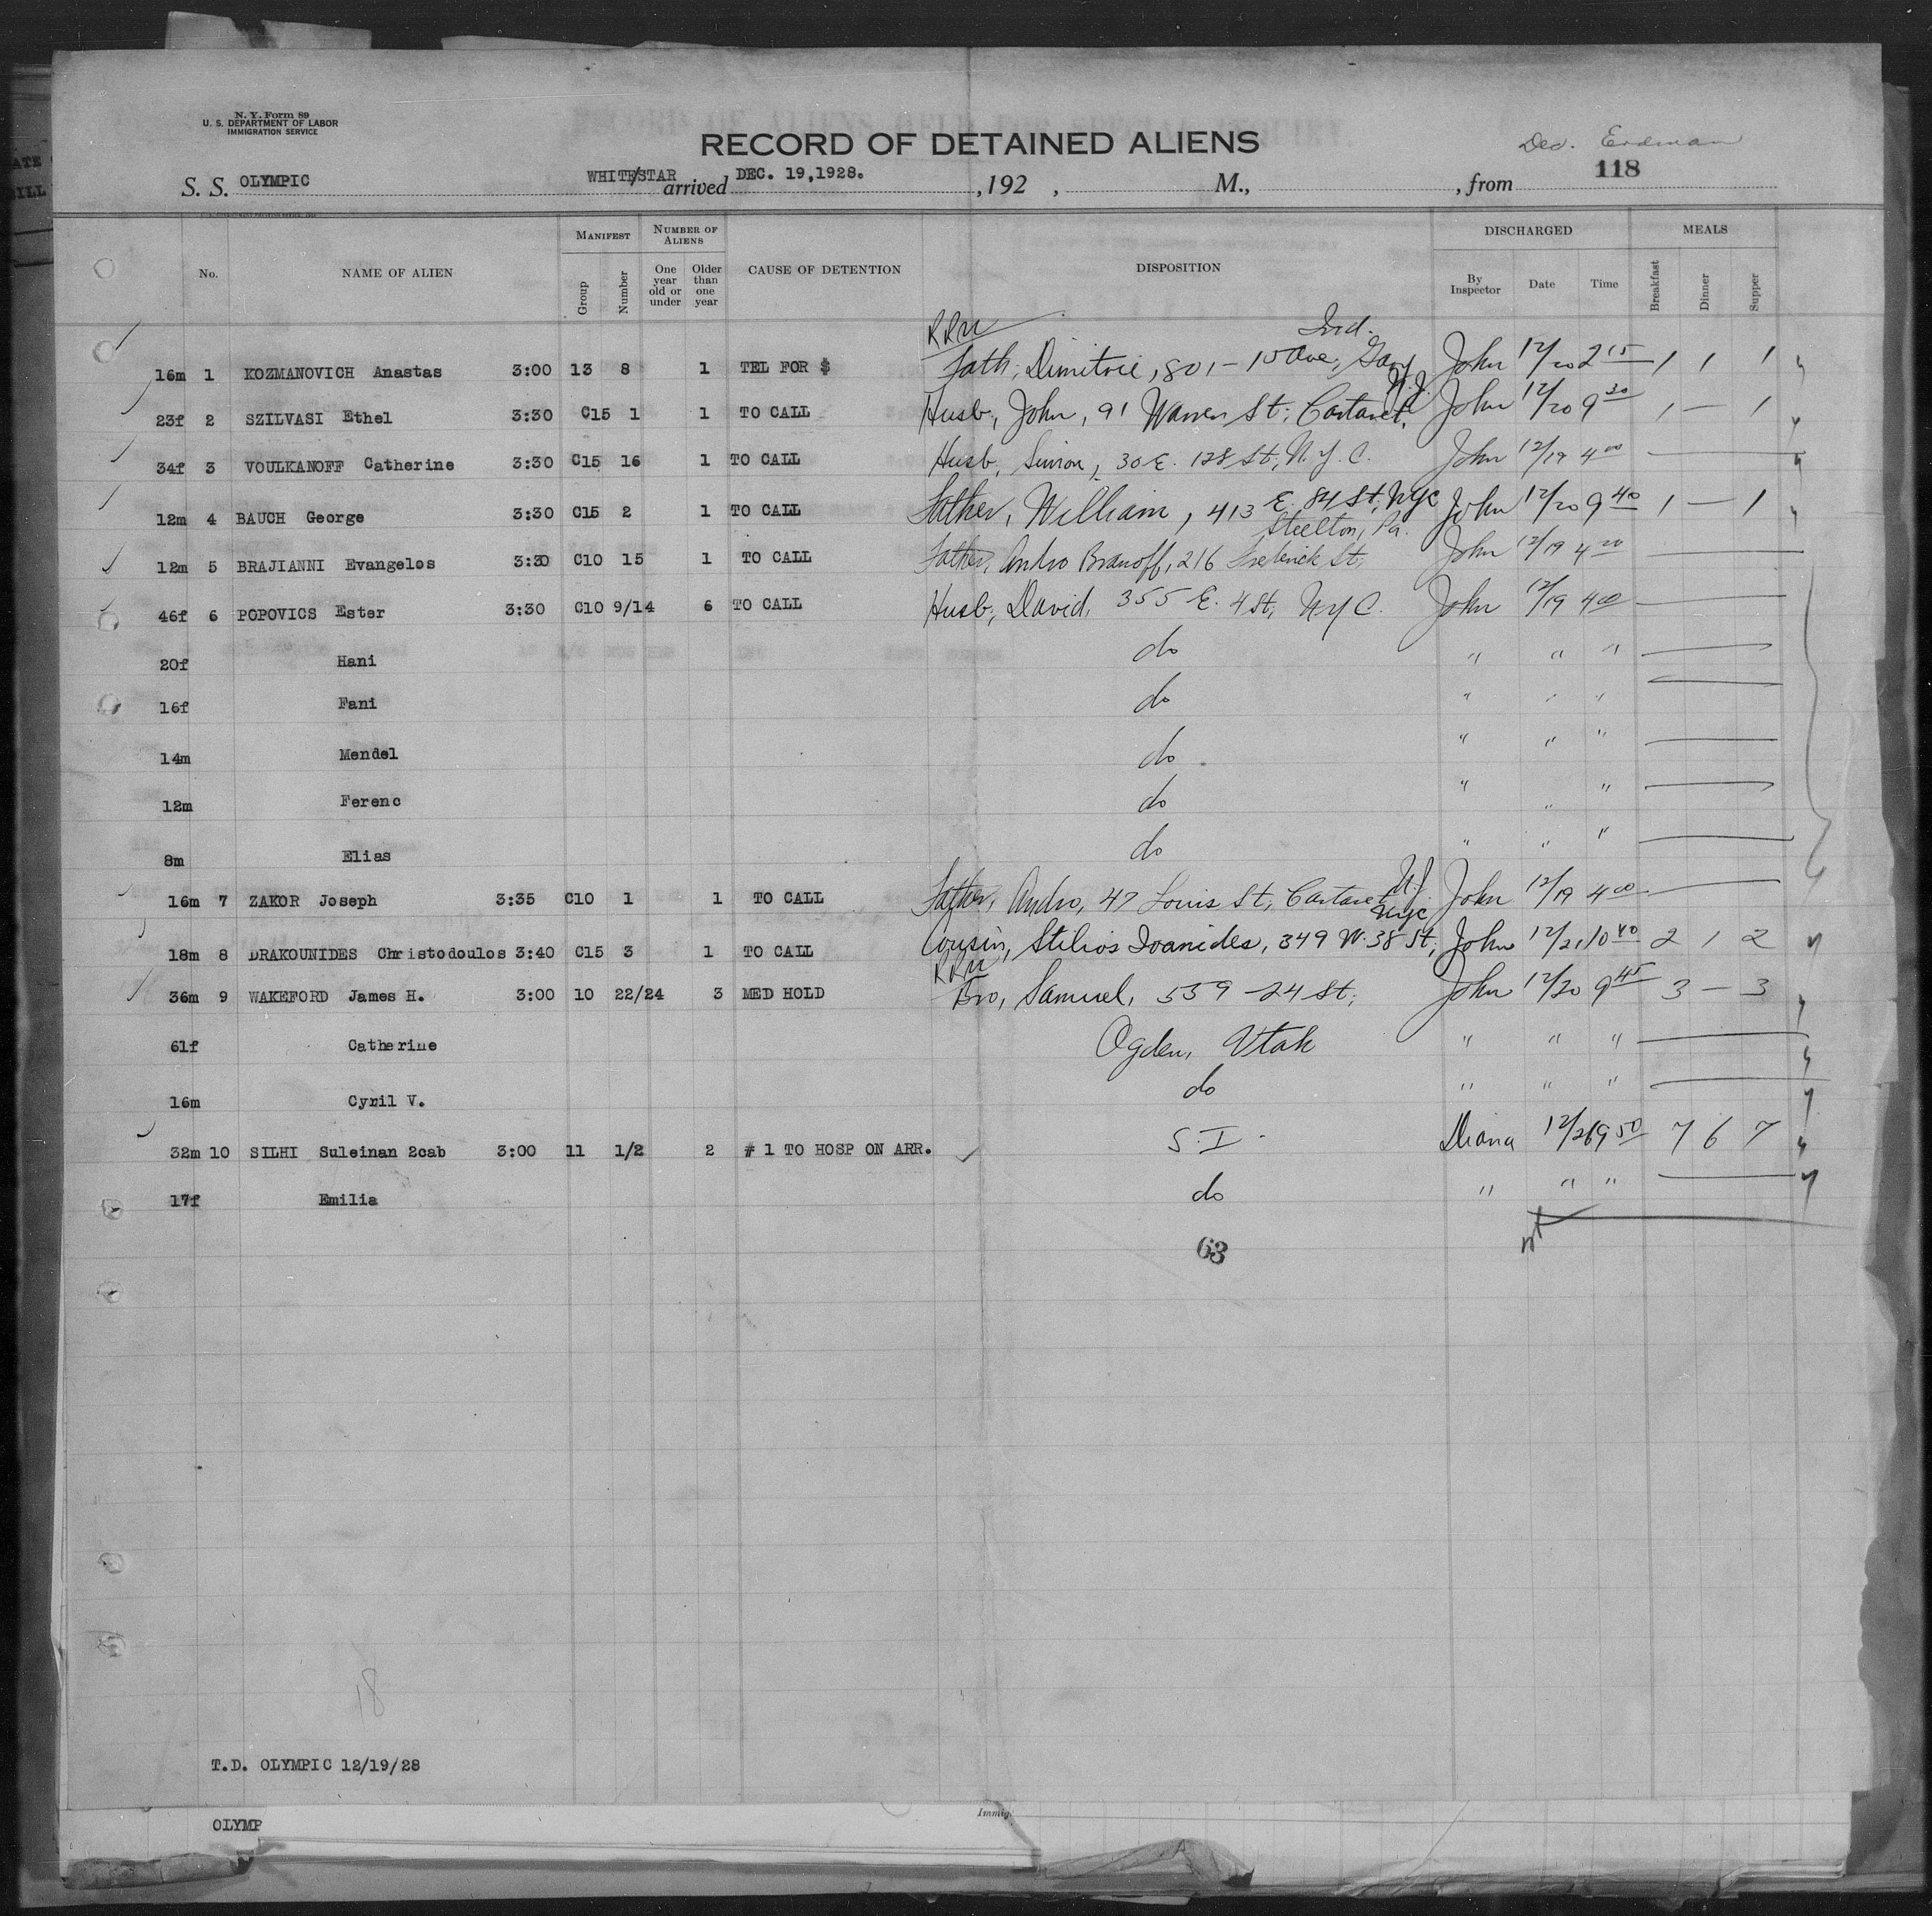 N. Y. Form 89
U. S. DEPARTMENT OF LABOR
IMMIGRATION SERVICE
RECORD OF DETAINED ALIENS
Erdman
118
S. S. OLYMPIC WHITE/STAR arrived DEC. 19,1928. , 192 , M., , from
No. NAME OF ALIEN MANIFEST Group Number NUMBER OF ALIENS One year old or under Older than one year CAUSE OF DETENTION DISPOSITION DISCHARGED By Inspector Date Time MEALS Breakfast Dinner Supper
RRU Ind.
16m 1 KOZMANOVICH Anastas 3:00 13 8 1 TEL FOR $ Fath, Dimitrie, 801-15 Ave, Gary John 12/20 2 15 1 1 1
N.J.
23f 2 SZILVASI Ethel 3:30 C15 1 1 TO CALL Husb, John, 91 Warren St; Cartaret, John 12/20 9 30 1 — 1
34f 3 VOULKANOFF Catherine 3:30 C15 16 1 TO CALL Husb, Simon, 30 E. 128 St, N.Y.C. John 12/19 4 00
12m 4 BAUCH George 3:30 C15 2 1 TO CALL Father, William, 413 E. 84 St, NYC John 12/20 9 40 1 — 1
Steelton, Pa.
12m 5 BRAJIANNI Evangelos 3:30 C10 15 1 TO CALL Father, Andro Branoff, 216 Frederick St, John 12/19 4 20
46f 6 POPOVICS Ester 3:30 C10 9/14 6 TO CALL Husb, David, 355 E. 4 St, NYC. John 12/19 4 00
20f Hani do " " "
16f Fani do " " "
14m Mendel do " " "
12m Ferenc do " " "
8m Elias do " " "
N.J.
16m 7 ZAKOR Joseph 3:35 C10 1 1 TO CALL Father, Andro, 47 Louis St, Cartaret John 12/19 4 00
NYC
18m 8 DRAKOUNIDES Christodoulos 3:40 C15 3 1 TO CALL Cousin, Stilios Ioanides, 349 W. 38 St, John 12/21 10 40 2 1 2
RRU
36m 9 WAKEFORD James H. 3:00 10 22/24 3 MED HOLD Bro, Samuel, 539-24 St; John 12/20 9 45 3 — 3
61f Catherine Ogden, Utah " " "
16m Cyril V. do " " "
32m 10 SILHI Suleinan 2cab 3:00 11 1/2 2 # 1 TO HOSP ON ARR. S.I. Diana 12/26 9 50 7 6 7
17f Emilia do " " "
63
18
T.D. OLYMPIC 12/19/28
OLYMP
Immig